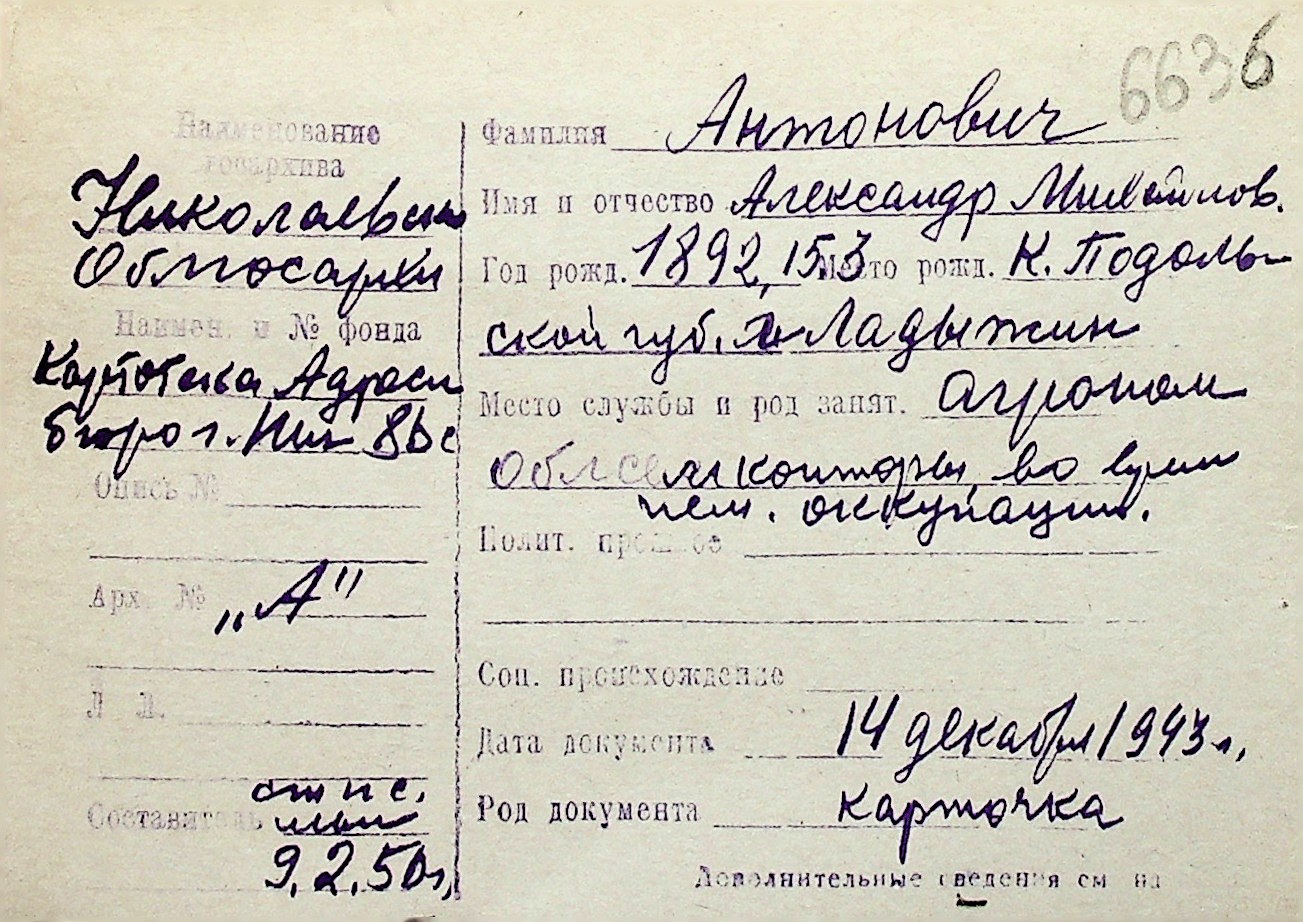 6636
Наименование
госархива
Николаевский
Облгосархив
Наимен. и № фонда
Картотека Адресн
бюро г.
Опись №
Арх. №
„А"
Л Л.
Составитель
9.2.50г.
Фамилия Антонович
Имя и отчество Александр Михайлов.
Год рожд. 1892, 15.3 Место рожд. К. Подоль-
ской губ. Ладыжин
Место службы и род занят. Агроном
Облсемконторы, во врем
нем. оккупации.
Полит. прошлое
Соц. происхождение
Дата документа 14 декабря 1943 г.
Род документа карточка
Дополнительные сведения см на